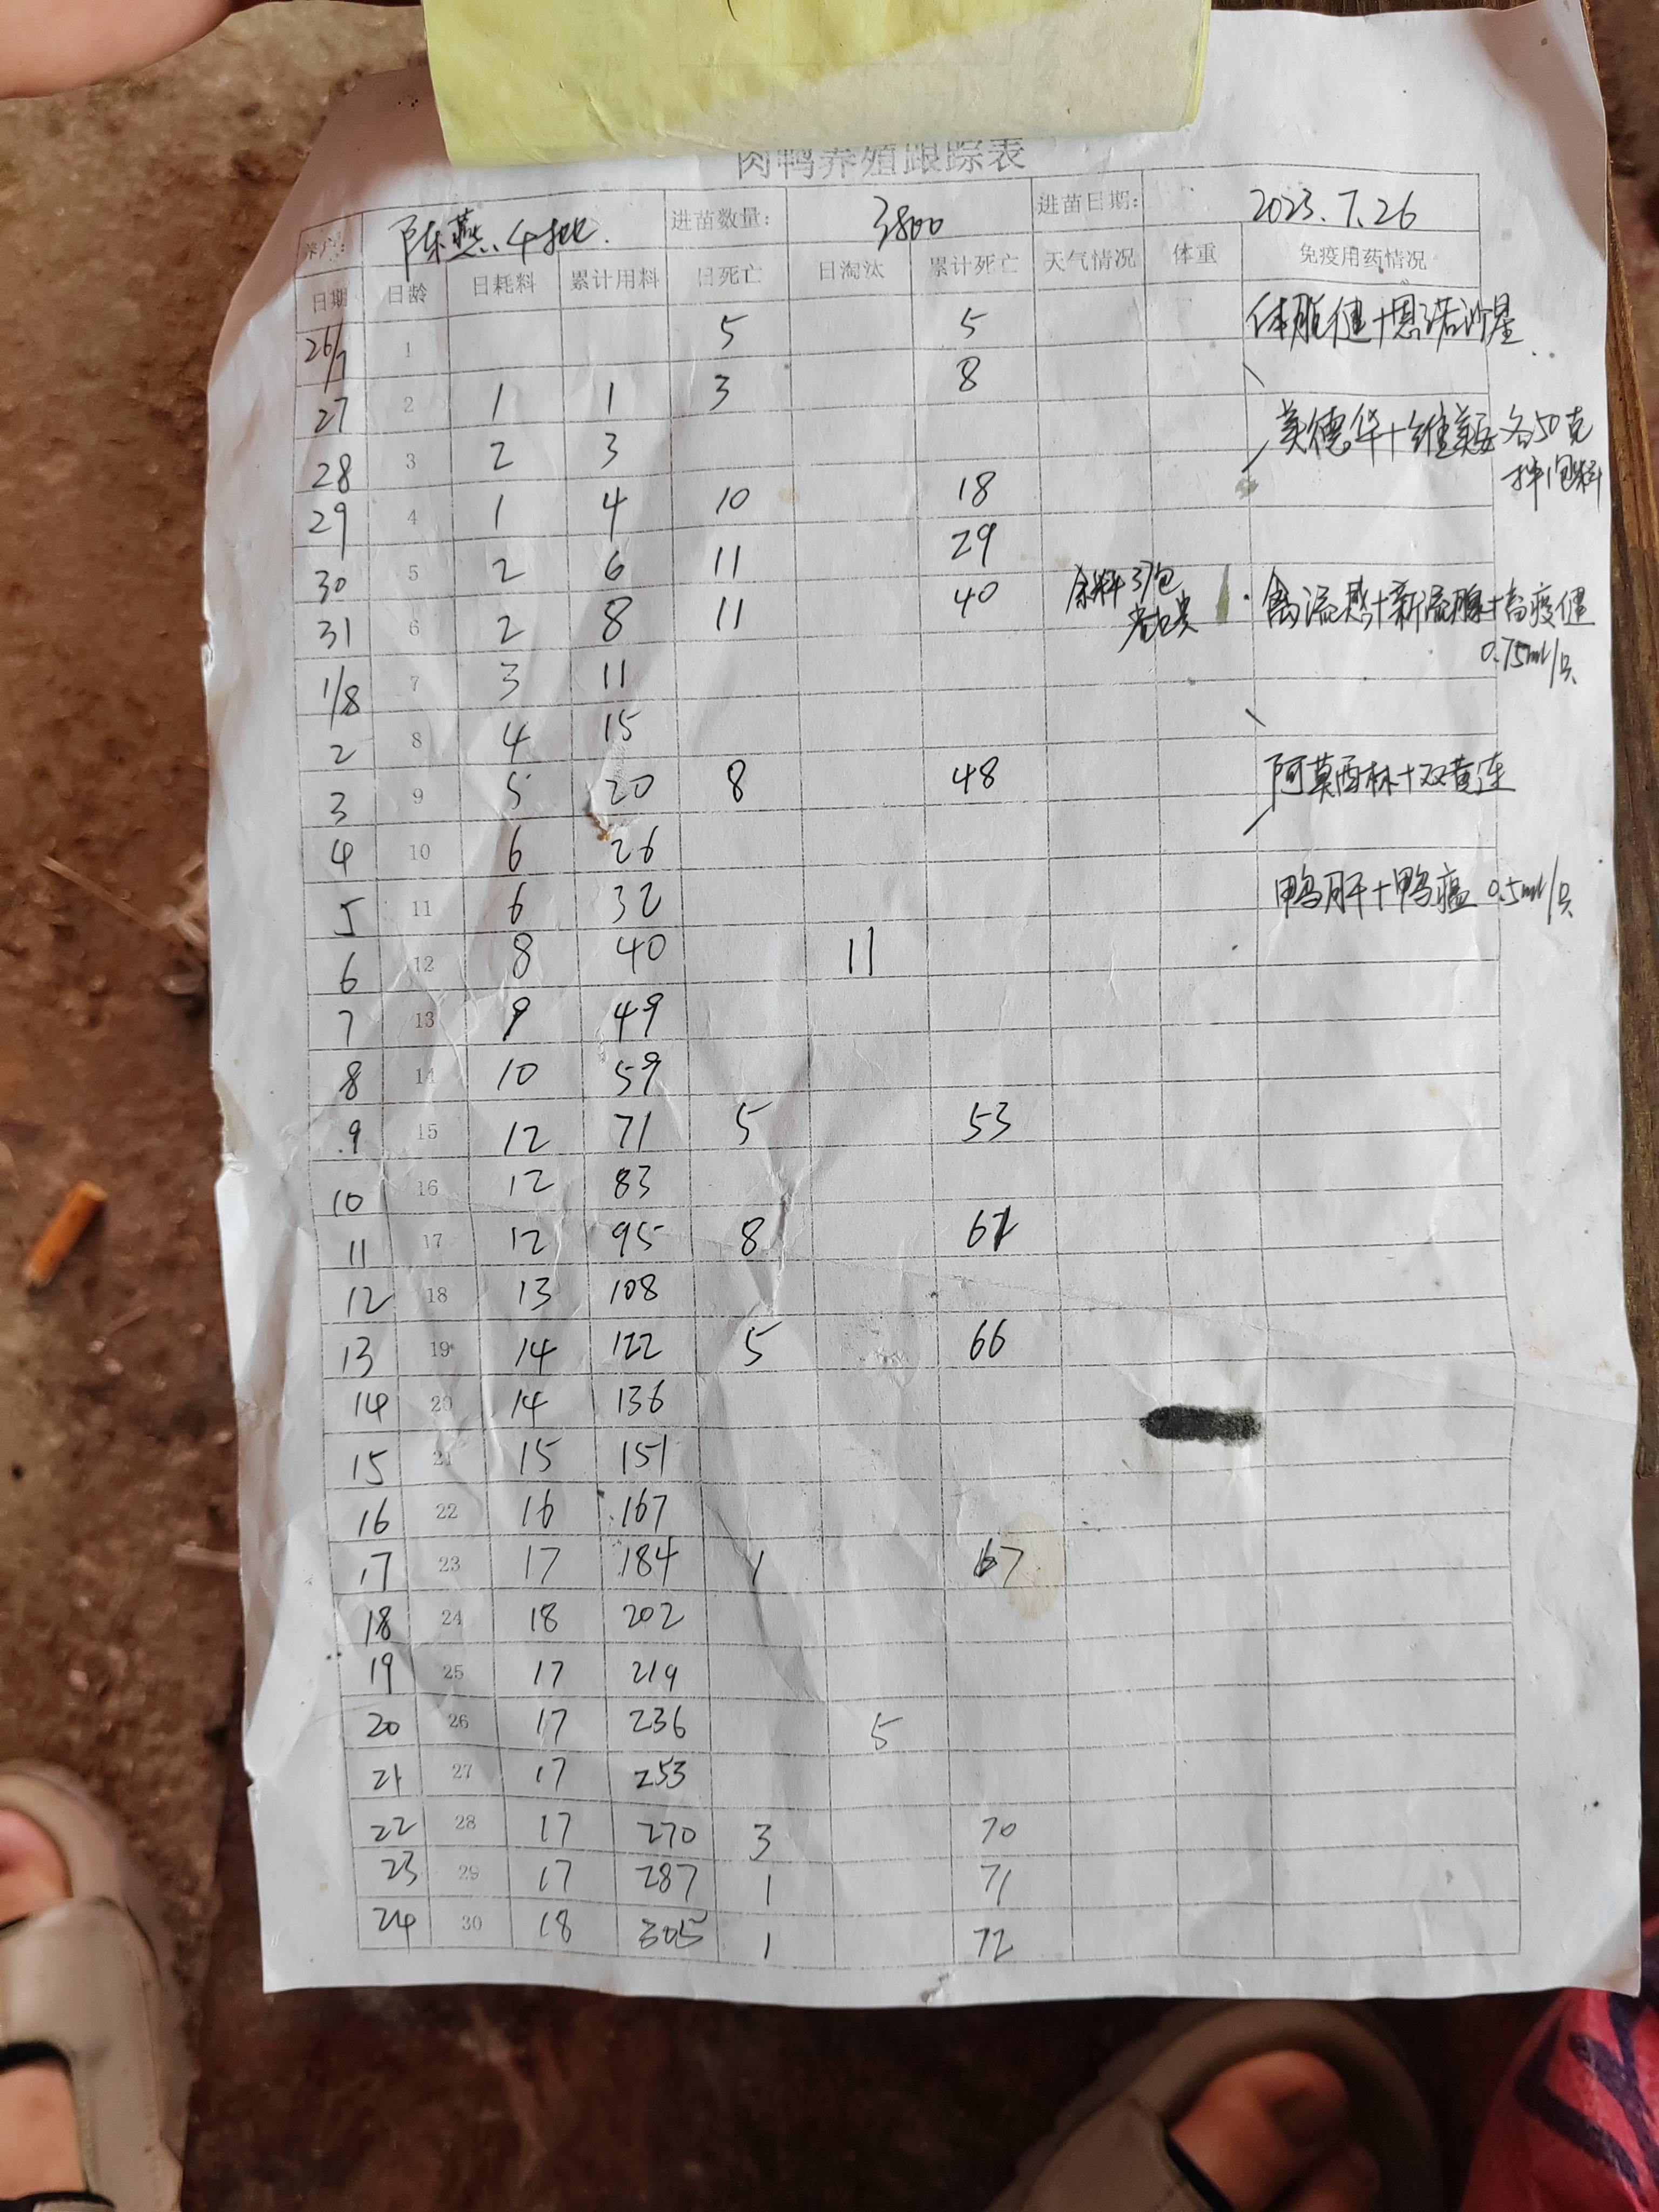 肉鸭养殖跟踪表
养户: 陈燕.4批. 进苗数量: 3800 进苗日期: 2023.7.26
日期 日龄 日耗料 累计用料 日死亡 日淘汰 累计死亡 天气情况 体重 免疫用药情况
26/7 1 5 5 体能健+恩诺沙星
27 2 1 1 3 8
28 3 2 3 美德华+维 各50克
拌1包料
29 4 1 4 10 18
30 5 2 6 11 29
31 6 2 8 11 40 余料37包 禽流感+新流腺+畜疫健
0.75ml/只
1/8 7 3 11
2 8 4 15
3 9 5 20 8 48 阿莫西林+双黄连
4 10 6 26
5 11 6 32 鸭肝+鸭瘟 0.5ml/只
6 12 8 40 11
7 13 9 49
8 14 10 59
9 15 12 71 5 53
10 16 12 83
11 17 12 95 8 61
12 18 13 108
13 19 14 122 5 66
14 20 14 136
15 21 15 151
16 22 16 167
17 23 17 184 1 67
18 24 18 202
19 25 17 219
20 26 17 236 5
21 27 17 253
22 28 17 270 3 70
23 29 17 287 1 71
24 30 18 305 1 72